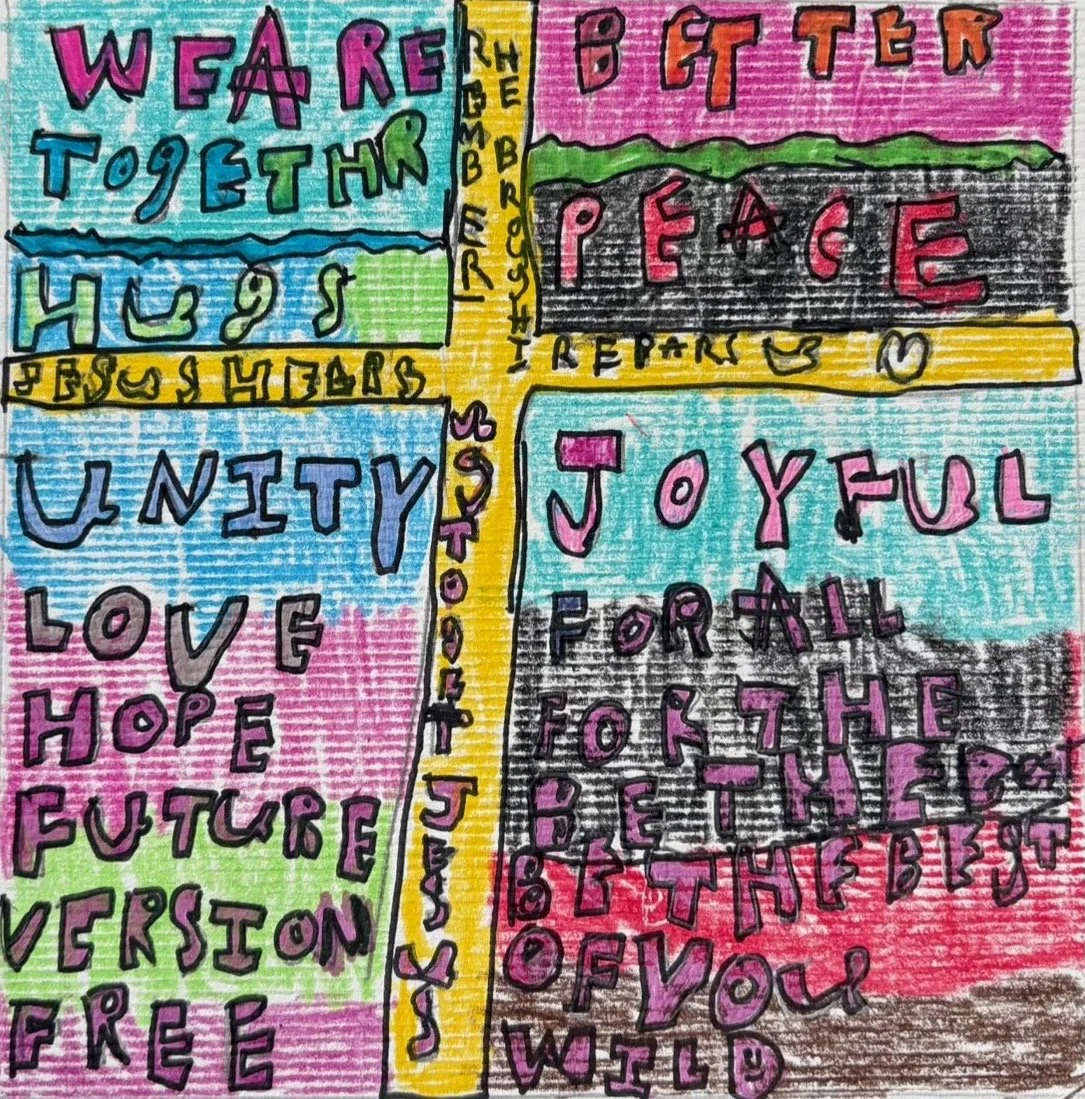 WE ARE
TOgETHR
HUgS
REMBER
HE BROUGHT
BETTER
PEACE
JESUS
REPARS US
UNITY
LOVE
HOPE
FUTURE
VERSION
FREE
JESUS
JOYFUL
FOR ALL
FOR THE
BE THE
BE THE BEST
OF YOU
WILD